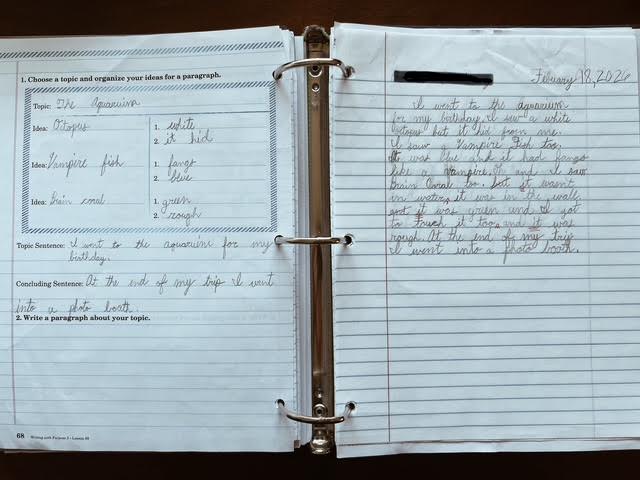 1. Choose a topic and organize your ideas for a paragraph.
Topic: The aquarium
Idea: Octopus
1. white
2. it hid
Idea: Vampire fish
1. fangs
2. blue
Idea: Brain coral
1. green
2. rough
Topic Sentence: I went to the aquarium for my
birthday.
Concluding Sentence: At the end of my trip I went
into a photo booth.
2. Write a paragraph about your topic.
68 Writing with Purpose 3 • Lesson
February 18, 2026
I went to the aquarium
for my birthday. I saw a white
octopus but it hid from me.
I saw a Vampire Fish too.
It was blue and it had fangs
like a Vampire. and I saw
Brain Coral too. but it wasn't
in water, it was in the wall
and it was green and I got
to touch it too, and It was
rough. At the end of my trip
I went into a photo booth.